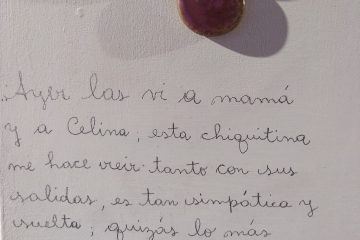 Ayer las vi a mamá
y a Celina; esta chiquitina
me hace reir tanto con sus
salidas, es tan simpática y
suelta; quizás lo más